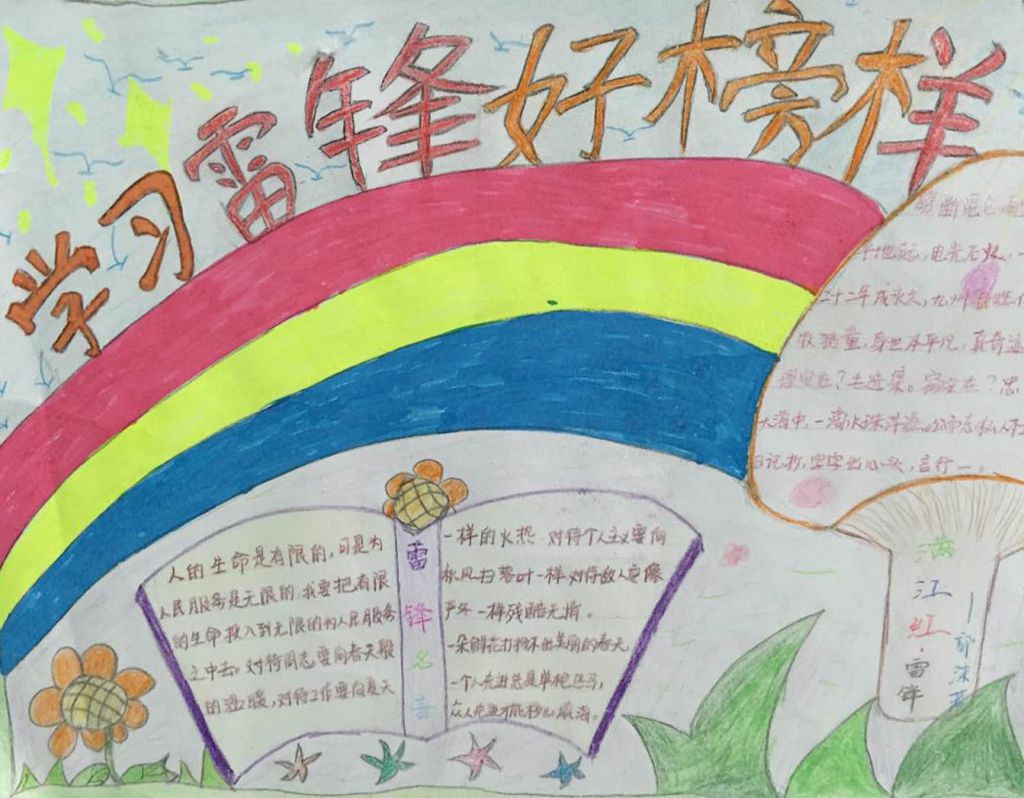 学习雷锋好榜样
平地起,电光石火,一
二十二年成永久,九州
牧猪童,身世本平凡,真奇迹
在?毛选集。在?忠
大海中,一滴水珠洋溢。公而忘私人
日记抄,字字出心头,言行一。
满江红·雷锋
——郭沫若
雷锋名言
人的生命是有限的,可是为
人民服务是无限的,我要把有限
的生命投入到无限的为人民服务
之中去。对待同志要向春天般
的温暖,对待工作要向夏天
一样的火热 对待个人主义要向
秋风扫落叶一样 对待敌人要像
严冬一样残酷无情。
一朵鲜花打扮不出美丽的春天
一个人先进总是单枪匹马,
众人先进才能移山填海。